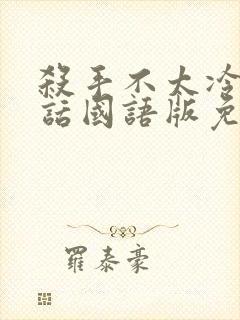 殺手不太冷
話國語版免
羅泰豪